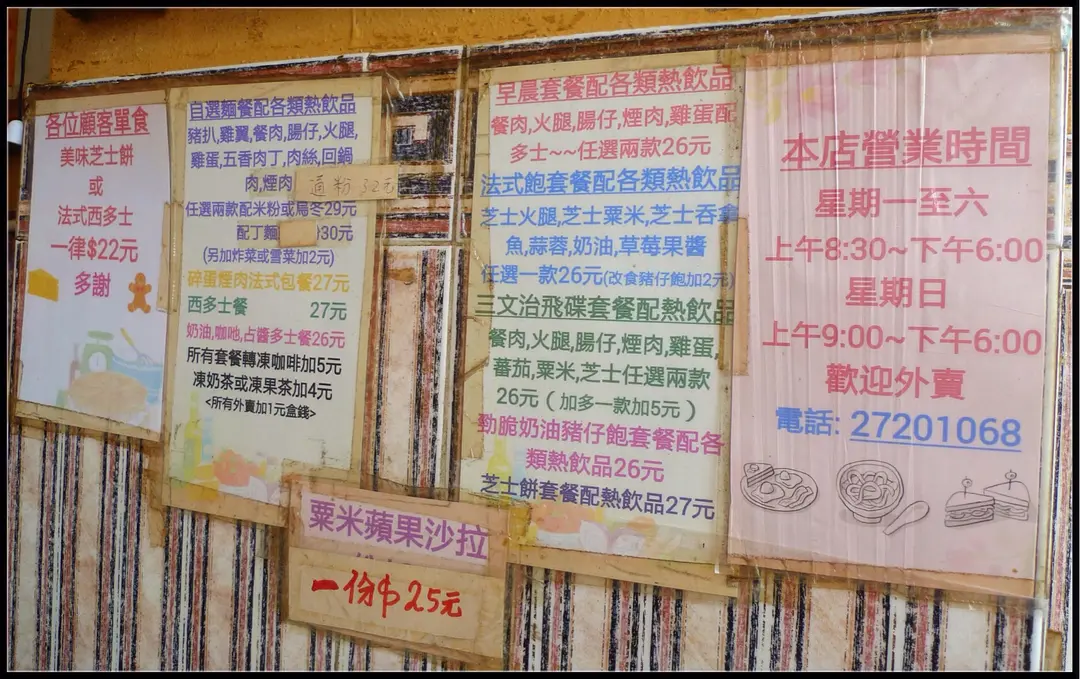 各位顧客單食
美味芝士餅
或
法式西多士
一律$22元
多謝
自選麵餐配各類熱飲品
豬扒,雞翼,餐肉,腸仔,火腿,
雞蛋,五香肉丁,肉絲,回鍋
肉,煙肉
通粉 32元
任選兩款配米粉或烏冬29元
配丁麵 30元
(另加炸菜或雪菜加2元)
碎蛋煙肉法式包餐27元
西多士餐 27元
奶油,咖吔,占醬多士餐26元
所有套餐轉凍咖啡加5元
凍奶茶或凍果茶加4元
<所有外賣加1元盒錢>
早晨套餐配各類熱飲品
餐肉,火腿,腸仔,煙肉,雞蛋配
多士~~任選兩款26元
法式飽套餐配各類熱飲品
芝士火腿,芝士粟米,芝士吞拿
魚,蒜蓉,奶油,草莓果醬
任選一款26元(改食豬仔飽加2元)
三文治飛碟套餐配熱飲品
餐肉,火腿,腸仔,煙肉,雞蛋,
蕃茄,粟米,芝士任選兩款
26元（加多一款加5元）
勁脆奶油豬仔飽套餐配各
類熱飲品26元
芝士餅套餐配熱飲品27元
本店營業時間
星期一至六
上午8:30~下午6:00
星期日
上午9:00~下午6:00
歡迎外賣
電話: 27201068
粟米蘋果沙拉
一份$25元